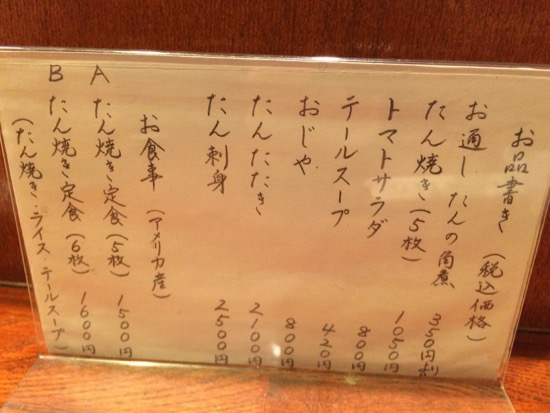 お品書き（税込価格）
お通し たんの角煮 350円
たん焼き（5枚） 1050円
トマトサラダ 800円
テールスープ 420円
おじや 800円
たんたたき 2100円
たん刺身 2500円
お食事（アメリカ産）
A たん焼き定食（5枚） 1500円
B たん焼き定食（6枚） 1600円
（たん焼き・ライス・テールスープ）